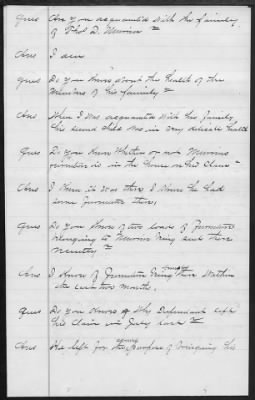 Ques Are you acquainted with the family
of Thos D. Newson
Ans I am
Ques Do you know about the health of the
members of his family
Ans When I was acquainted with his family
his second child was in very delicate health
Ques Do you know whether or not Newsons
furniture is in the house on his Claim
Ans I know it was there I know he had
some furniture there,
Ques Do you know of two loads of furniture
belonging to Newsons being sent there
recently
Ans I know of furniture being sent there within
the last two months.
Ques Do you know why Defendant left
his Claim in July last
Ans He left for the purpose of bringing his